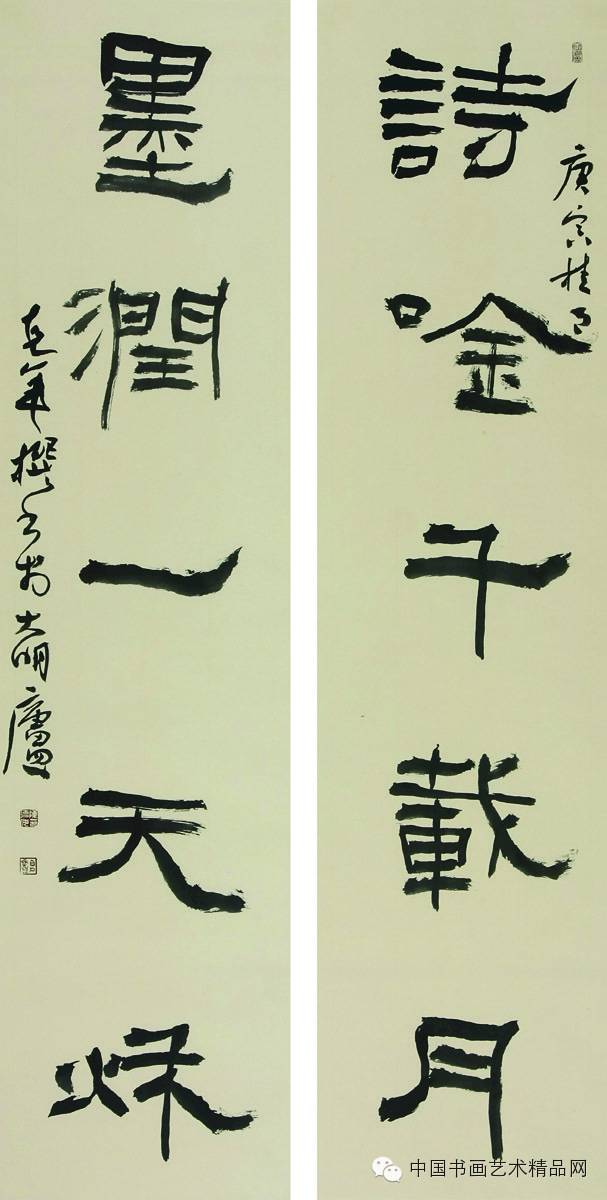 庚寅桂月
詩唫千載月
墨潤一天秌
撰书於大明廬
中国书画艺术精品网